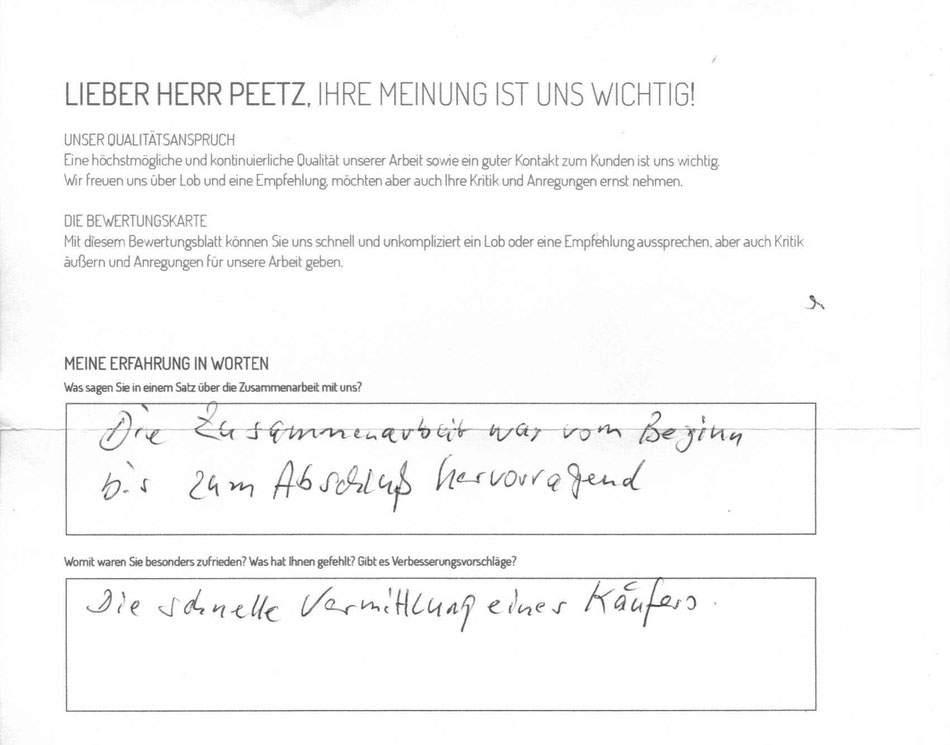 LIEBER HERR PEETZ, IHRE MEINUNG IST UNS WICHTIG!
UNSER QUALITÄTSANSPRUCH
Eine höchstmögliche und kontinuierliche Qualität unserer Arbeit sowie ein guter Kontakt zum Kunden ist uns wichtig.
Wir freuen uns über Lob und eine Empfehlung, möchten aber auch Ihre Kritik und Anregungen ernst nehmen.
DIE BEWERTUNGSKARTE
Mit diesem Bewertungsblatt können Sie uns schnell und unkompliziert ein Lob oder eine Empfehlung aussprechen, aber auch Kritik
äußern und Anregungen für unsere Arbeit geben.
MEINE ERFAHRUNG IN WORTEN
Was sagen Sie in einem Satz über die Zusammenarbeit mit uns?
Die Zusammenarbeit war vom Beginn
bis zum Abschluß hervorragend
Womit waren Sie besonders zufrieden? Was hat Ihnen gefehlt? Gibt es Verbesserungsvorschläge?
Die schnelle Vermittlung eines Käufers.